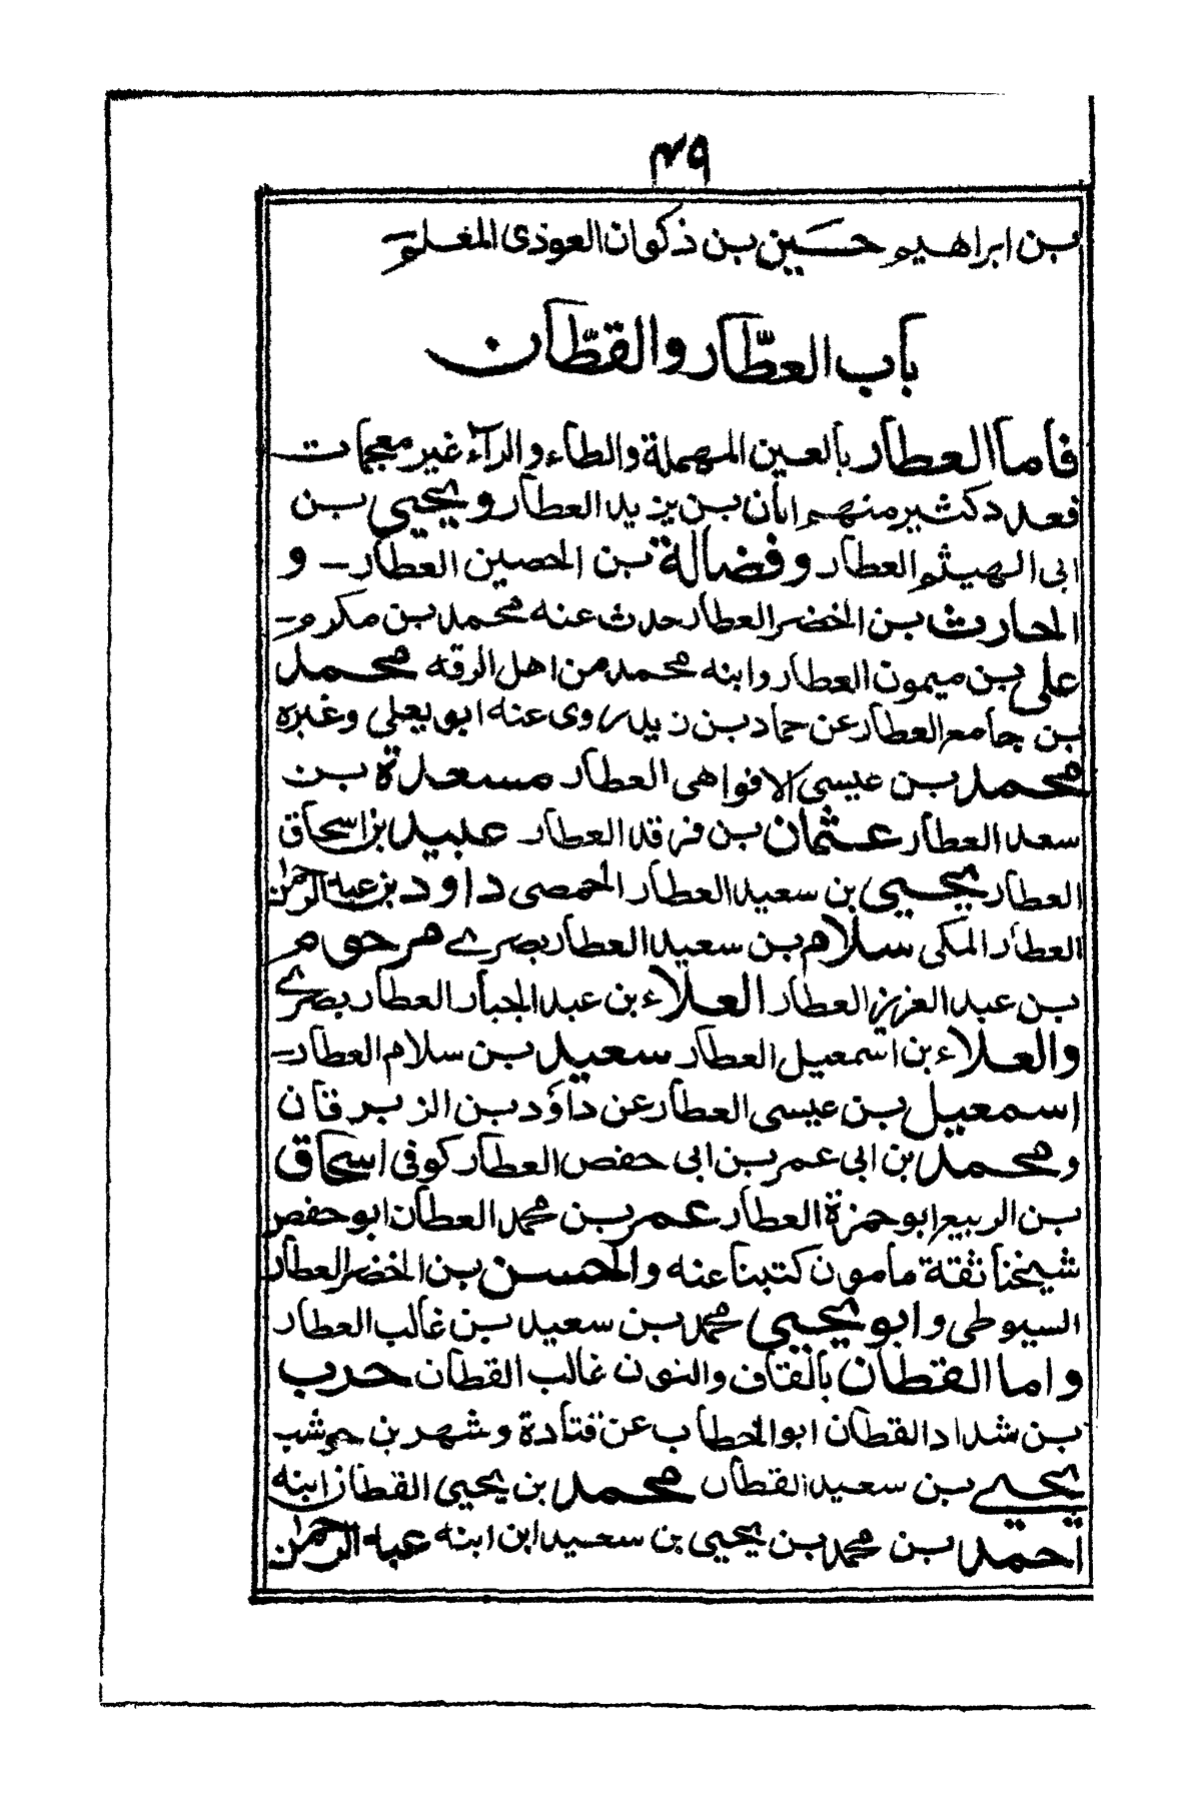 ٤٩
بن ابراهيم حسين بن ذكوان العوذى المعلم
باب العطّار والقطّان
فاما العطار بالعين المهملة والطاء والرآء غير معجمات
فعدد كثير منهم ابان بن يزيد العطار ويحيى بن
ابى الهيثم العطار وفضالة بن الحصين العطار و
الحارث بن الخضر العطار حدث عنه محمد بن مكرم
على بن ميمون العطار وابنه محمد من اهل الرقه محمد
بن جامع العطار عن حماد بن زيد روى عنه ابو يعلى وغيره
محمد بن عيسى الافواهى العطار مسعدة بن
سعد العطار عثمان بن فرقد العطار عبيد بن اسحاق
العطار يحيى بن سعيد العطار الحمصى داود بن عبد الرحمن
العطار المكى سلام بن سعيد العطار بصرے مرحوم
بن عبد العزيز العطار العلاء بن عبد الجبار العطار بصرے
والعلاء بن اسمعيل العطار سعيد بن سلام العطار
اسمعيل بن عيسى العطار عن داؤد بن الزبرقان
ومحمد بن ابى عمر بن ابى حفص العطار كوفى اسحاق
بن الربيع ابو حمزة العطار عمر بن محمد العطان ابو حفص
شيخنا ثقة مامون كتبنا عنه والحسن بن الخضر العطار
السيوطى وابو يحيى محمد بن سعيد بن غالب العطار
واما القطان بالقاف والنون غالب القطان حرب
بن شداد القطان ابو الخطاب عن قتادة وشهر بن حوشب
يحيے بن سعيد القطان محمد بن يحيى القطان ابنه
احمد بن محمد بن يحيى بن سعيد ابن ابنه عبد الرحمن